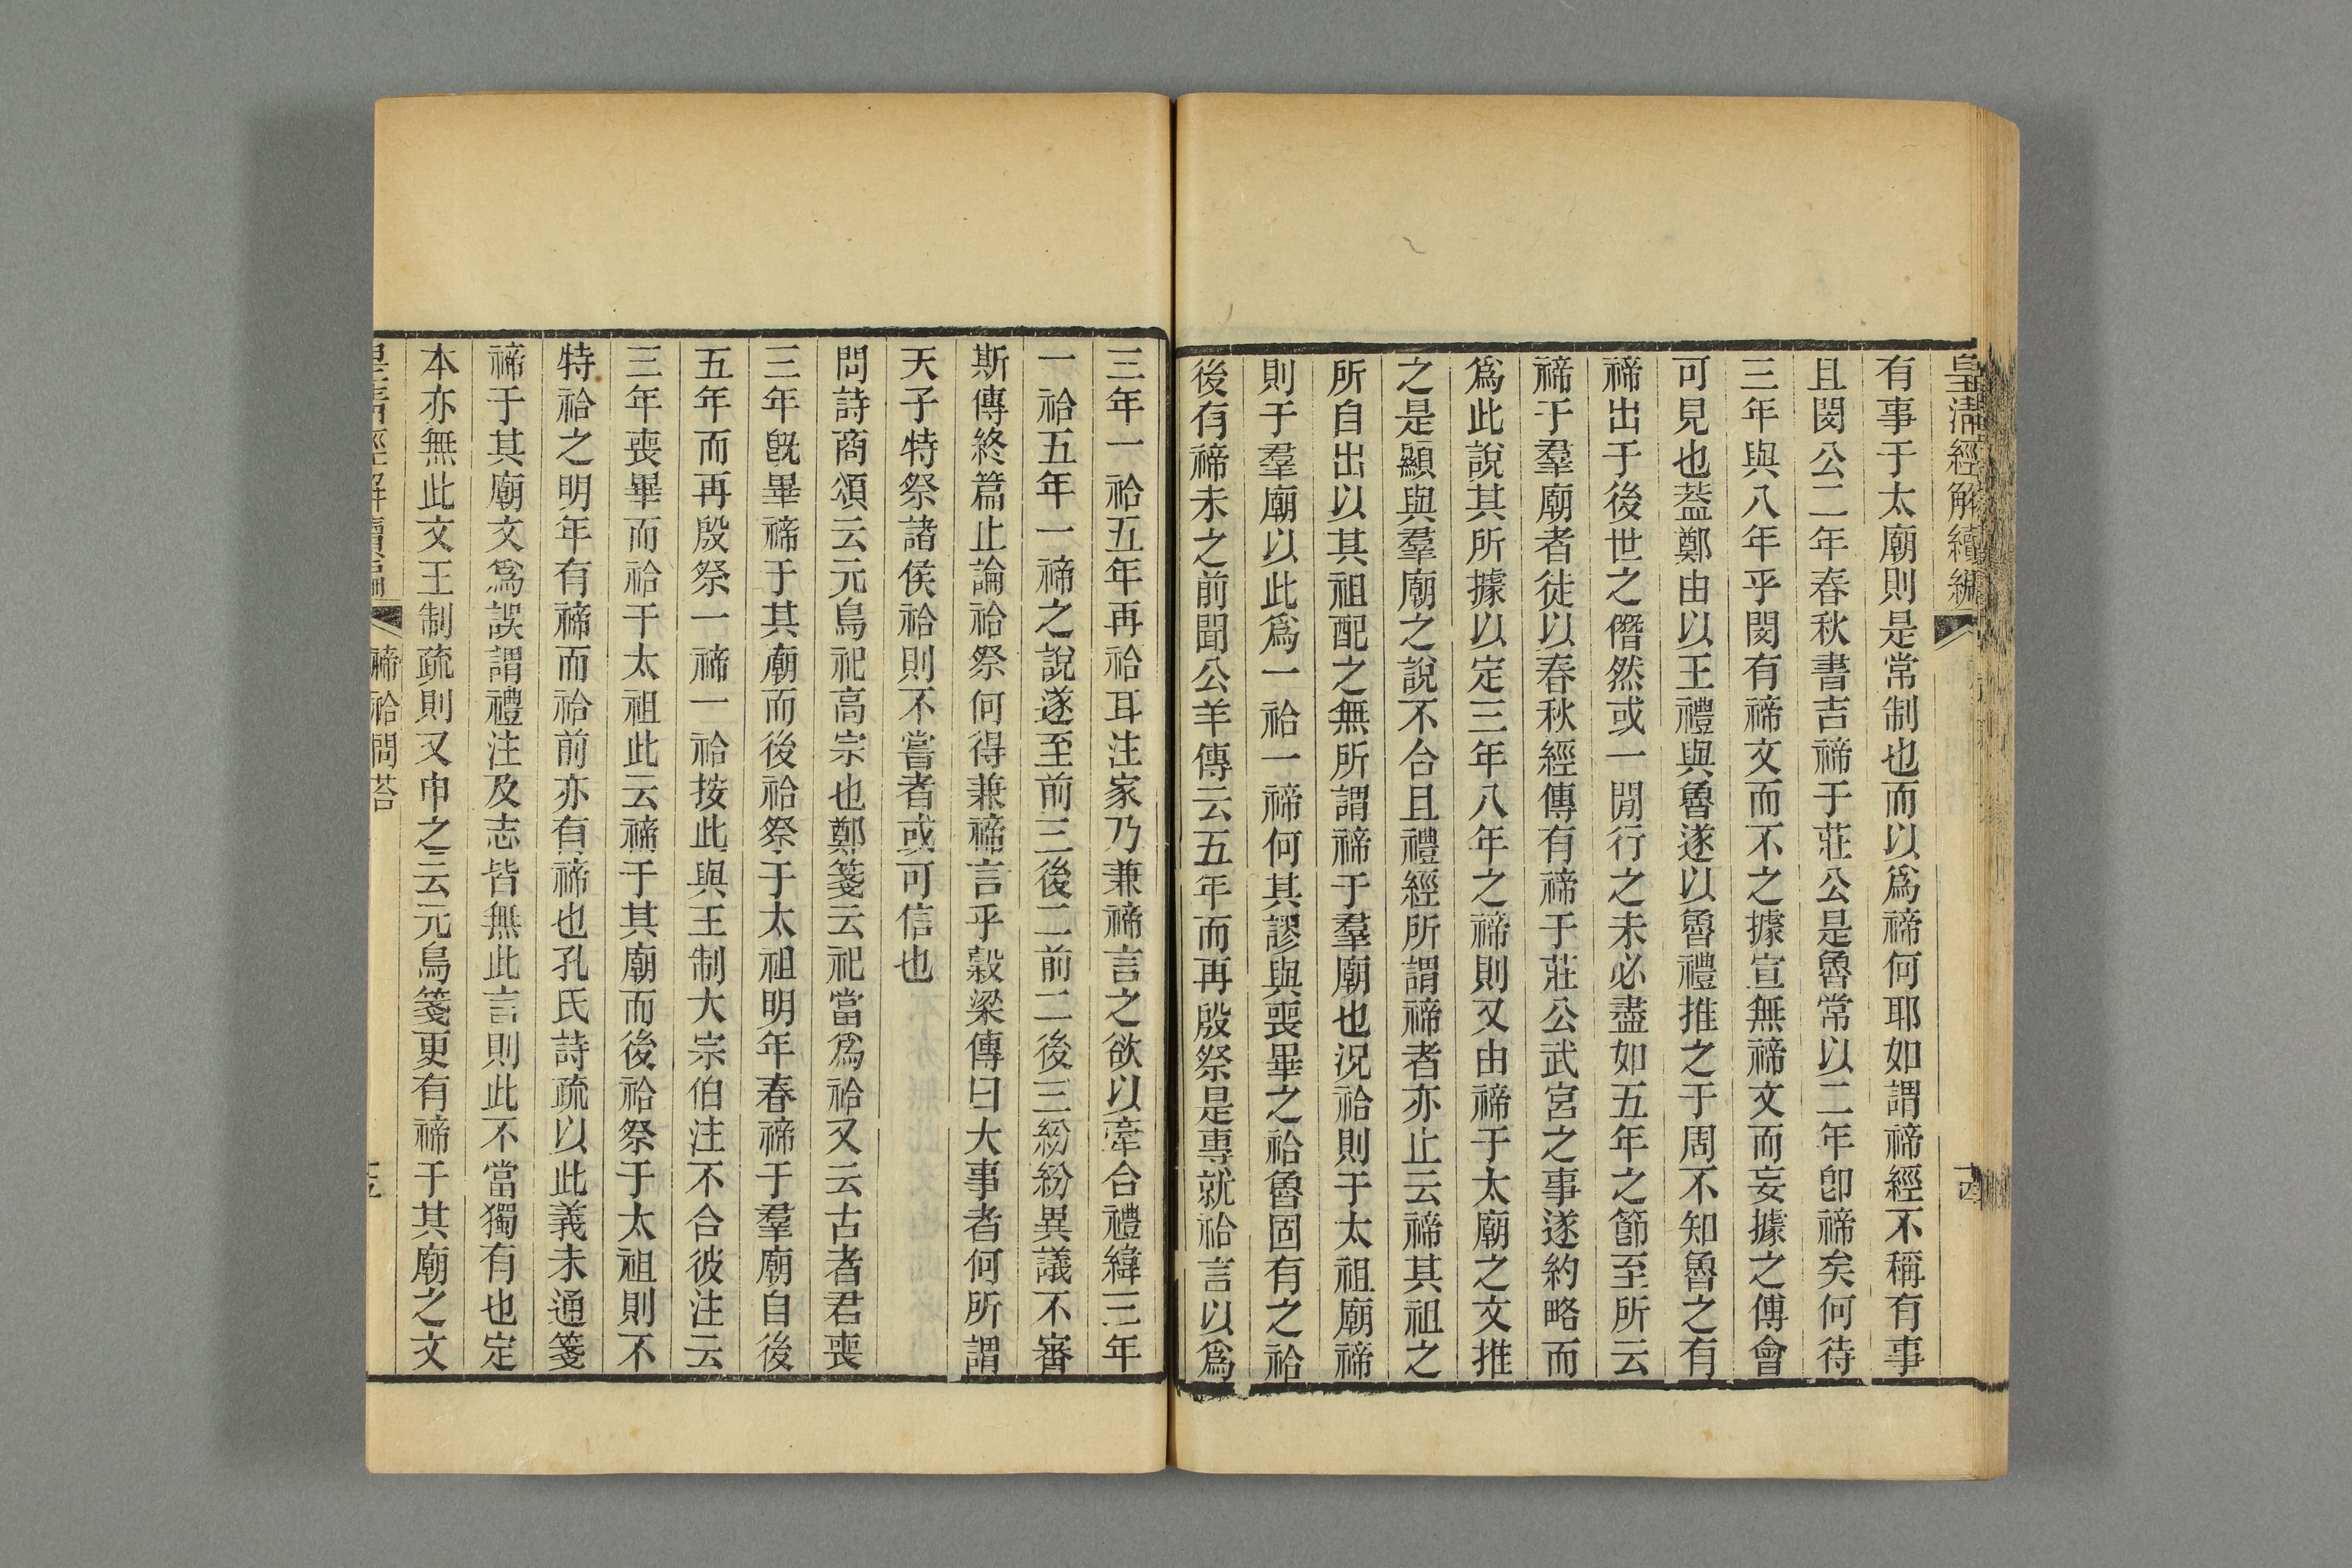 皇清經解續編
有事于太廟則是常制也而以爲禘何耶如謂禘經不稱有事
且閔公二年春秋書吉禘于莊公是魯常以二年卽禘矣何待
三年與八年乎閔有禘文而不之據宣無禘文而妄據之傅會
可見也葢鄭由以王禮與魯遂以魯禮推之于周不知魯之有
禘出于後世之僭然或一閒行之未必盡如五年之節至所云
禘于羣廟者徒以春秋經傳有禘于莊公武宮之事遂約略而
爲此說其所據以定三年八年之禘則又由禘于太廟之文推
之是顯與羣廟之說不合且禮經所謂禘者亦止云禘其祖之
所自出以其祖配之無所謂禘于羣廟也況祫則于太祖廟禘
則于羣廟以此爲一祫一禘何其謬與喪畢之祫魯固有之祫
後有禘未之前聞公羊傳云五年而再殷祭是專就祫言以爲
三年一祫五年再祫耳注家乃兼禘言之欲以牽合禮緯三年
一祫五年一禘之說遂至前三後二前二後三紛紛異議不審
斯傳終篇止論祫祭何得兼禘言乎穀梁傳曰大事者何所謂
天子特祭諸侯祫則不嘗者或可信也
問詩商頌云元鳥祀高宗也鄭箋云祀當爲祫又云古者君喪
三年旣畢禘于其廟而後祫祭于太祖明年春禘于羣廟自後
五年而再殷祭一禘一祫按此與王制大宗伯注不合彼注云
三年喪畢而祫于太祖此云禘于其廟而後祫祭于太祖則不
特祫之明年有禘而祫前亦有禘也孔氏詩疏以此義未通箋
禘于其廟文爲誤謂禮注及志皆無此言則此不當獨有也定
本亦無此文王制疏則又申之云元鳥箋更有禘于其廟之文
皇清經解續編
禘祫問荅